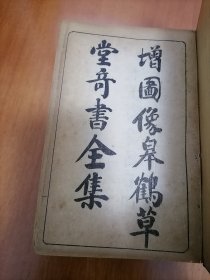 增圖像皋鶴草
堂奇書全集